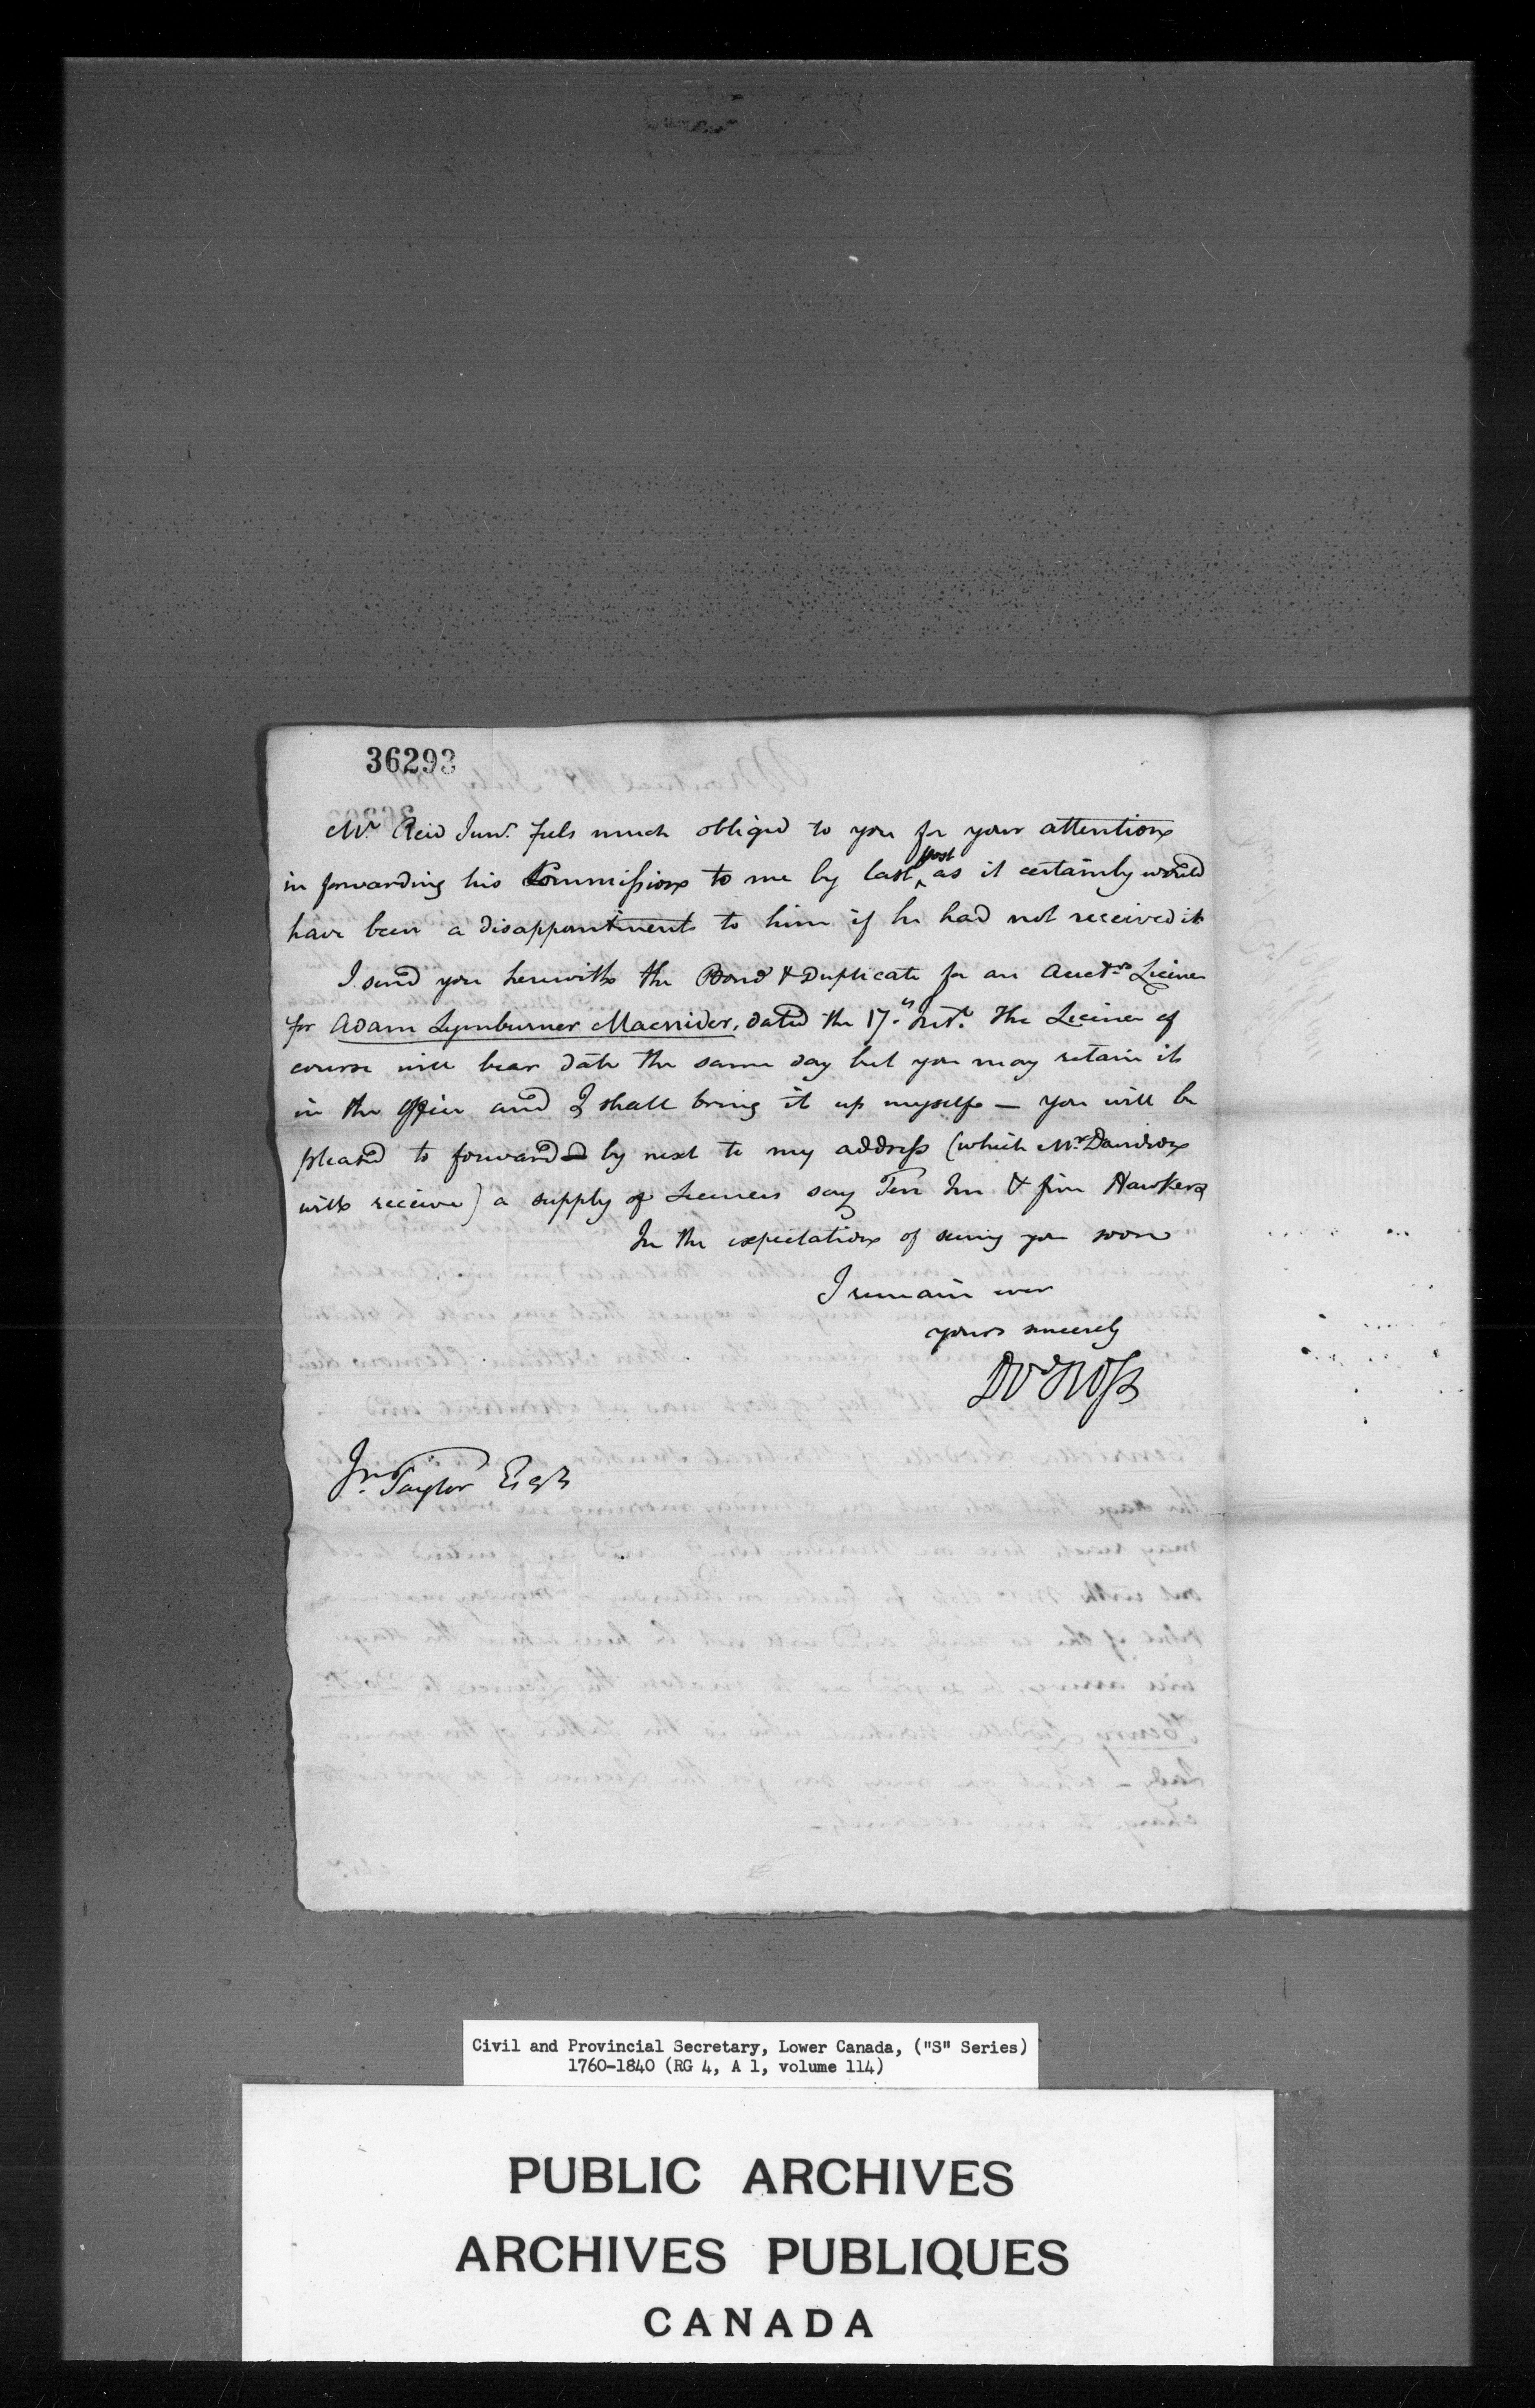 36293
Mr. Reid Junr. feels much obliged to you for your attention
in forwarding his Commission to me by last post as it certainly would
have been a disappointment to him if he had not received it
I send you herewith the Bond & Duplicate for an Auctrs. Licence
for Adam Lymburner Macnider, dated the 17th. Inst. The Licence of
course will bear date the same day but you may retain it
in the Office and I shall bring it up myself — You will be
pleased to forward by next to my address (which Mr Davidson
will receive) a supply of Licences say Ten Inn & five Hawkers
In the expectation of seeing you soon
I remain ever
yours sincerely
Dd Ross
Jn. Taylor Esqr
Civil and Provincial Secretary, Lower Canada, ("S" Series)
1760-1840 (RG 4, A 1, volume 114)
PUBLIC ARCHIVES
ARCHIVES PUBLIQUES
CANADA